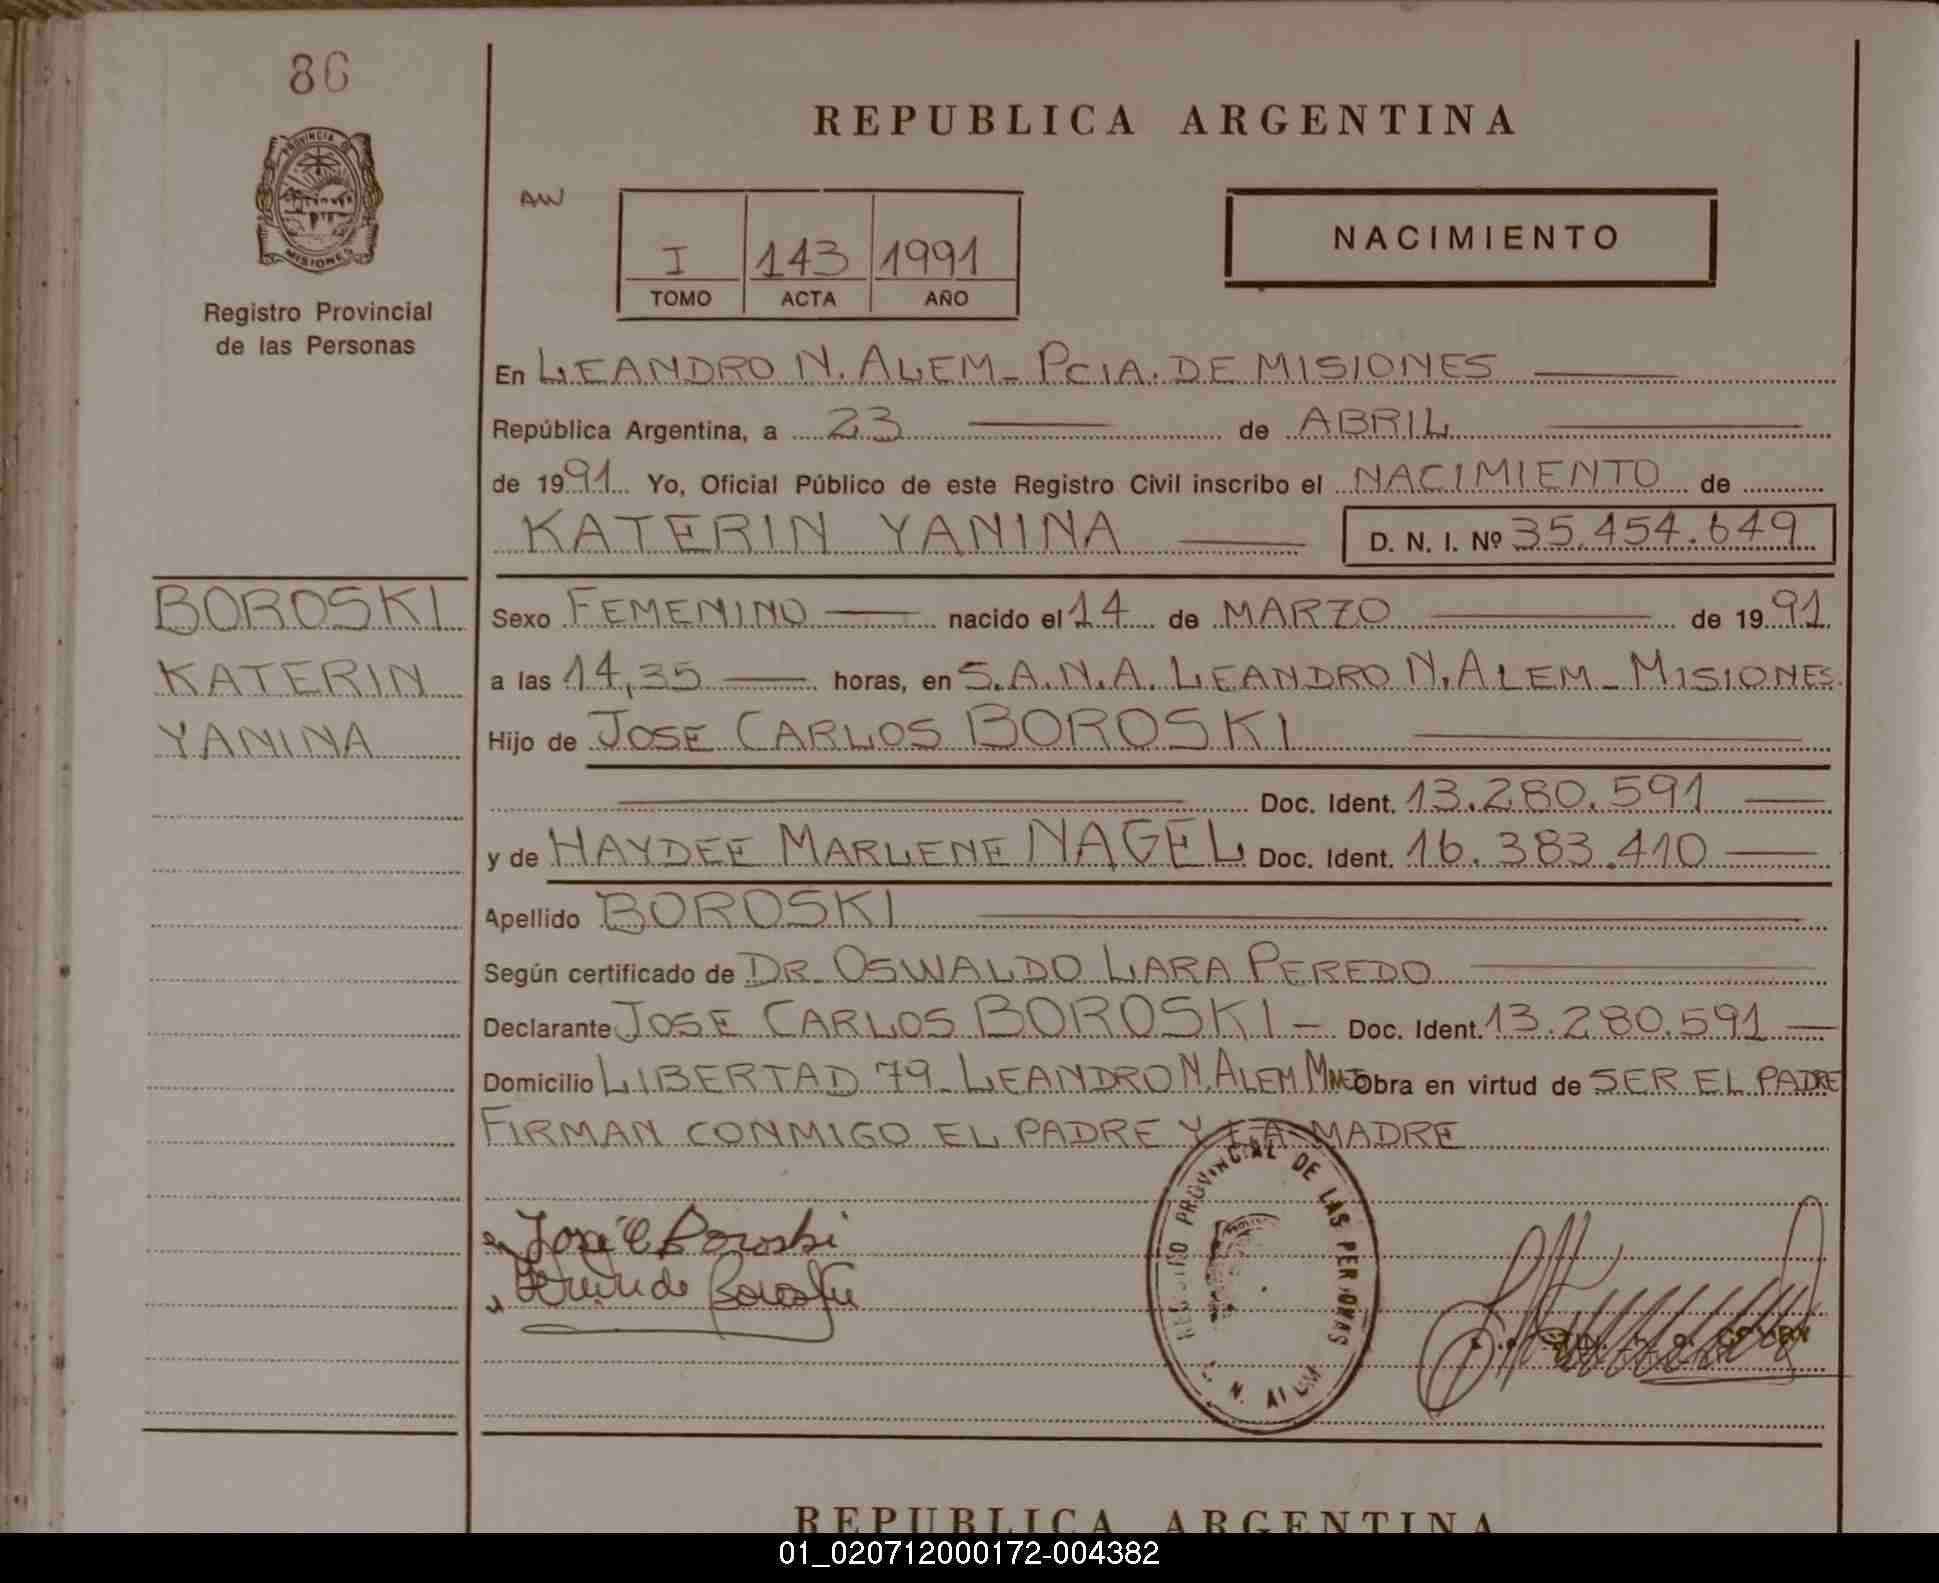 86
PROVINCIA DE
MISIONES
Registro Provincial
de las Personas
REPUBLICA ARGENTINA
AW
I 143 1991
TOMO ACTA AÑO
NACIMIENTO
En LEANDRO N. ALEM - PCIA. DE MISIONES
República Argentina, a 23 de ABRIL
de 1991 Yo, Oficial Público de este Registro Civil inscribo el NACIMIENTO de
KATERIN YANINA D. N. I. Nº 35.454.649
BOROSKI
KATERIN
YANINA
Sexo FEMENINO nacido el 14 de MARZO de 1991
a las 14,35 horas, en S.A.N.A. LEANDRO N. ALEM - MISIONES.
Hijo de JOSE CARLOS BOROSKI
Doc. Ident. 13.280.591
y de HAYDEE MARLENE NAGEL Doc. Ident. 16.383.410
Apellido BOROSKI
Según certificado de DR. OSWALDO LARA PEREDO
Declarante JOSE CARLOS BOROSKI - Doc. Ident. 13.280.591
Domicilio LIBERTAD 79 - LEANDRO N. ALEM. Obra en virtud de SER EL PADRE
FIRMAN CONMIGO EL PADRE Y LA MADRE
José C Boroski
REGISTRO PROVINCIAL DE LAS PERSONAS
L. N. ALEM
REPUBLICA ARGENTINA
01_020712000172-004382